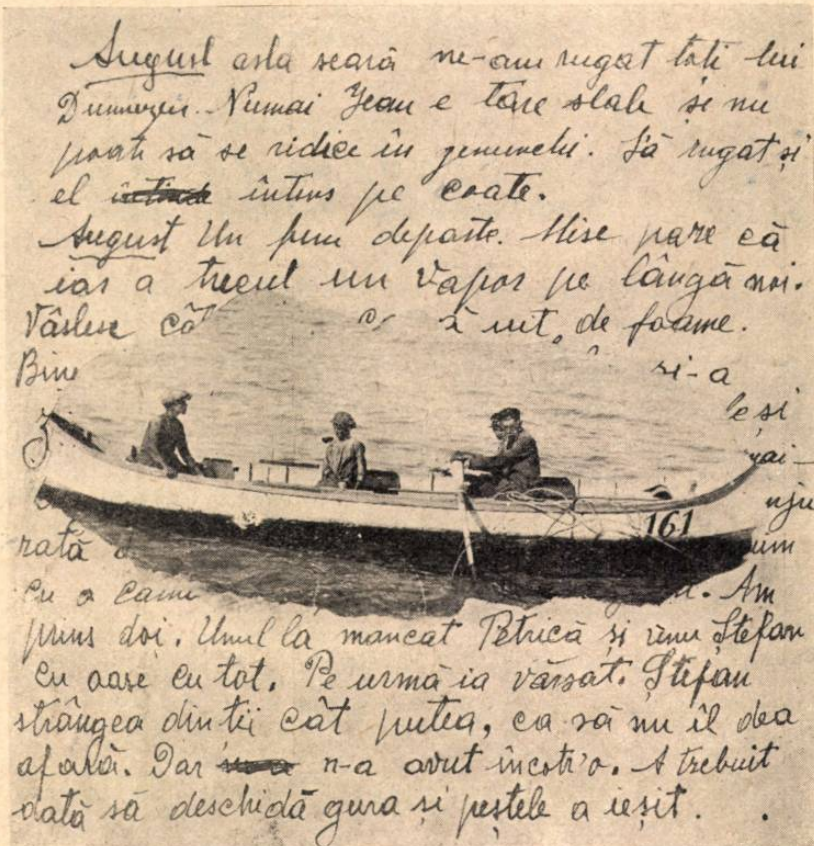 August asta seară ne-am rugat toti lui
Dumnezeu. Numai Jean e tare slab și nu
poate să se ridice în genunchi. Sà rugat și
el întins pe coate.
August Un fum departe. Mise pare că
iar a trecut un vapor pe lângă noi.
Vâslesc de foame.
Bine și-a
le și
161
rată
cu o
Am
prins doi. Unul la mancat Petrică și unu Ștefan
cu oase cu tot. Pe urmă ia vărsat. Ștefan
strângea din tii cât putea, ca să nu îl dea
afară. Dar n-a avut încotr'o. A trebuit
odată să deschidă gura si peștele a ieșit.